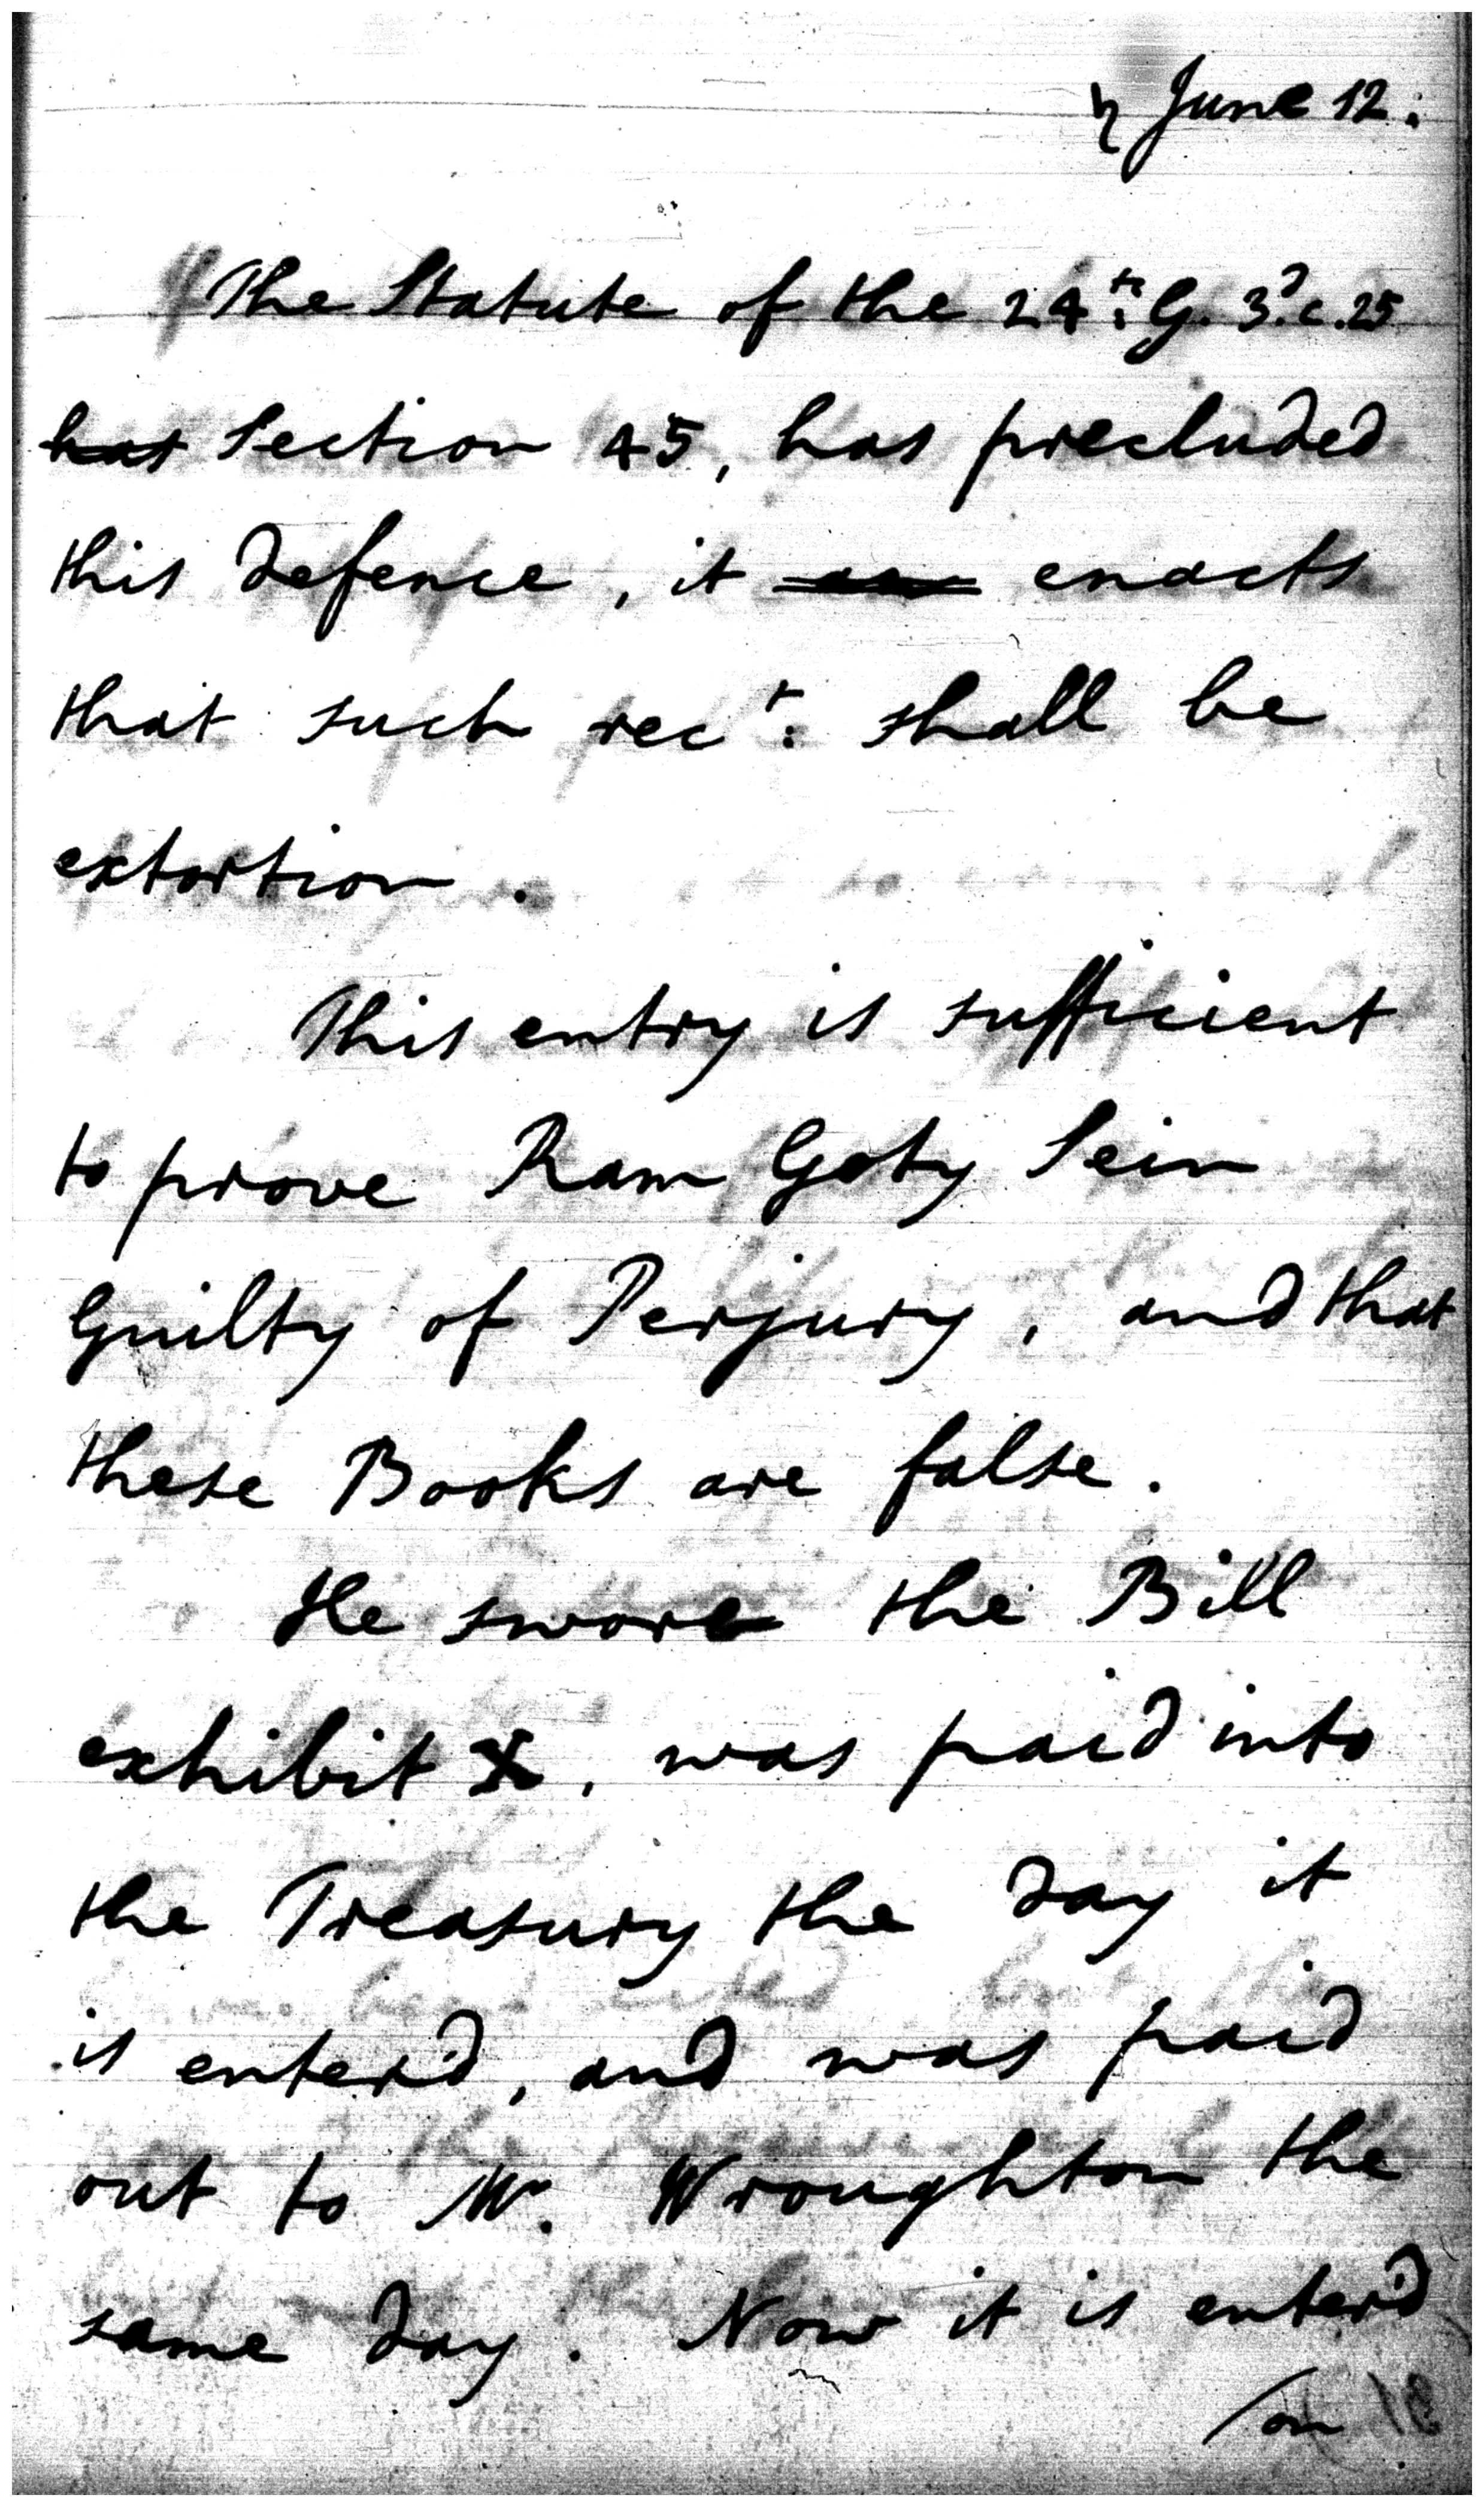 ♄ June 12.
The Statute of the 24th: G. 3d. c. 25
has Section 45, has precluded
this defence, it enacts
that such rect: shall be
extortion.
This entry is sufficient
to prove Ram Goty Sein
Guilty of Perjury, and that
these Books are false.
He swore the Bill
exhibit X, was paid into
the Treasury the day it
is enter'd, and was paid
out to Mr. Wroughton the
same day. Now it is enter'd
/on